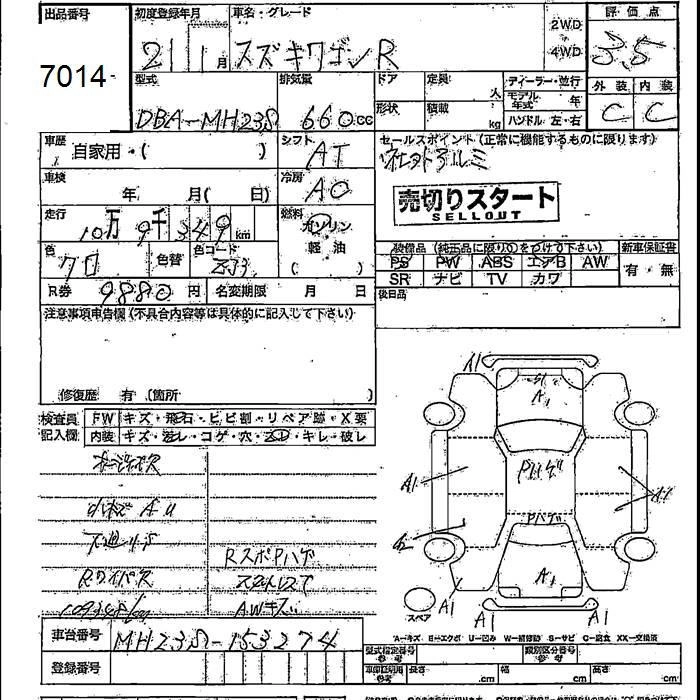 出品番号
7014
初度登録年月
21 1月
車名・グレード
スズキワゴンR
2WD
4WD
評価点
3.5
外装 内装
C C
型式
DBA-MH23S
排気量
660cc
ドア
定員
人
形状
積載
kg
ディーラー・並行
モデル年式 年
ハンドル 左・右
車歴
自家用・( )
シフト
AT
車検
年 月( 日)
冷房
AC
走行
10万9千349km
燃料
ガソリン
軽油
( )
色
クロ
色替
色コード
ZJ3
R券
9880円
名変期限 月 日
セールスポイント(正常に機能するものに限ります)
社外アルミ
売切りスタート
SELLOUT
装備品(純正品に限り○をつけて下さい)
PS PW ABS エアB AW
SR ナビ TV カワ
新車保証書
有・無
後日品
注意事項申告欄(不具合内容等は具体的に記入して下さい)
修復歴 有(箇所 )
検査員記入欄
FW キズ・飛石・ヒビ割・リペア跡・X要
内装 キズ・汚レ・コゲ・穴・スレ・キレ・破レ
小キズ A.U
RスポPハゲ
Rワイパー欠
AWキズ
A1
A1
Pハゲ
Pハゲ
A1
A1
A1
A1
スペア
A-キズ E-エクボ U-凹み W-補修跡 S-サビ C-腐食 XX-交換済
車台番号
MH23S-153274
登録番号
型式指定番号
参考
類別区分番号
参考
車両区分用
参考
長さ .cm
幅 .cm
高さ .cm